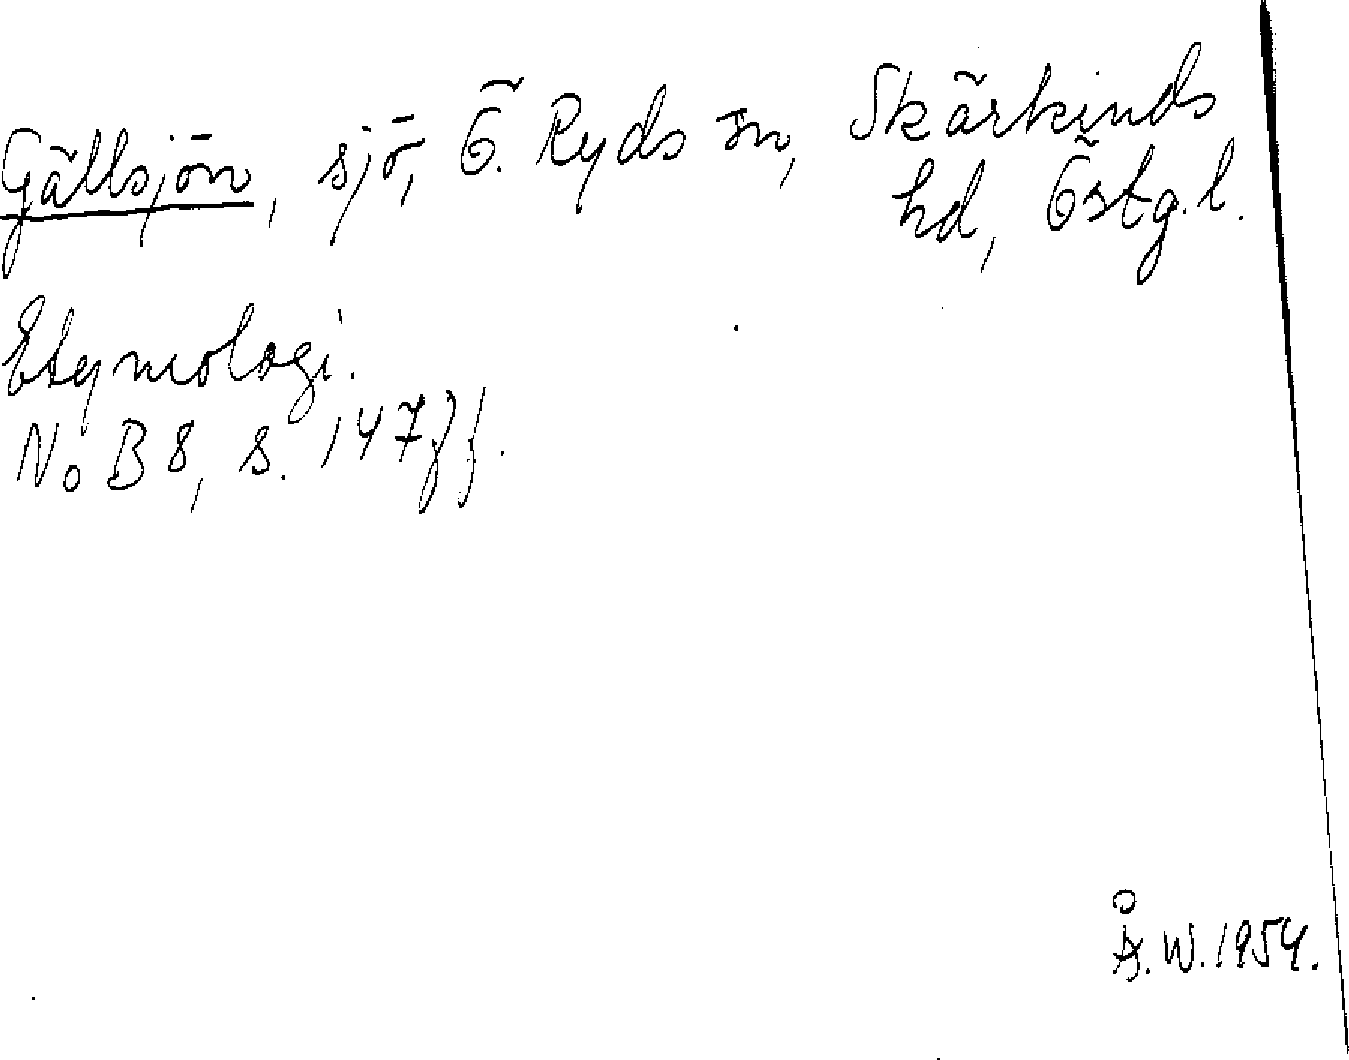 Gällsjön, sjö, Ö. Ryds sn, Skärkinds
hd, Östg.l.
Etymologi.
NoB 8, s. 147 ff.
Å.W. 1954.